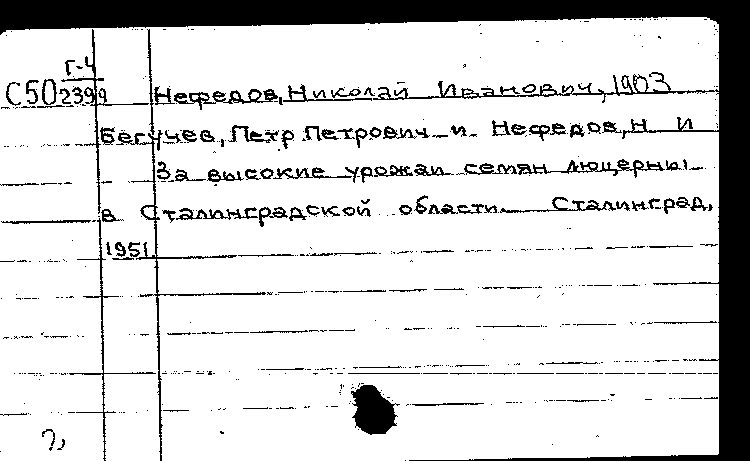 Г-4
С50 2399 Нефедов, Николай Иванович, 1903
Бегучев, Петр Петрович и Нефедов, Н И
За высокие урожаи семян люцерны
в Сталинградской области. Сталинград,
1951.